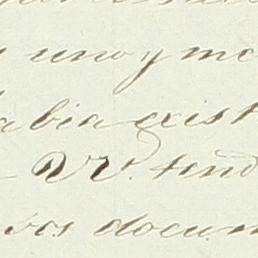 uno y me
abia exist
VV. tend
sos docum